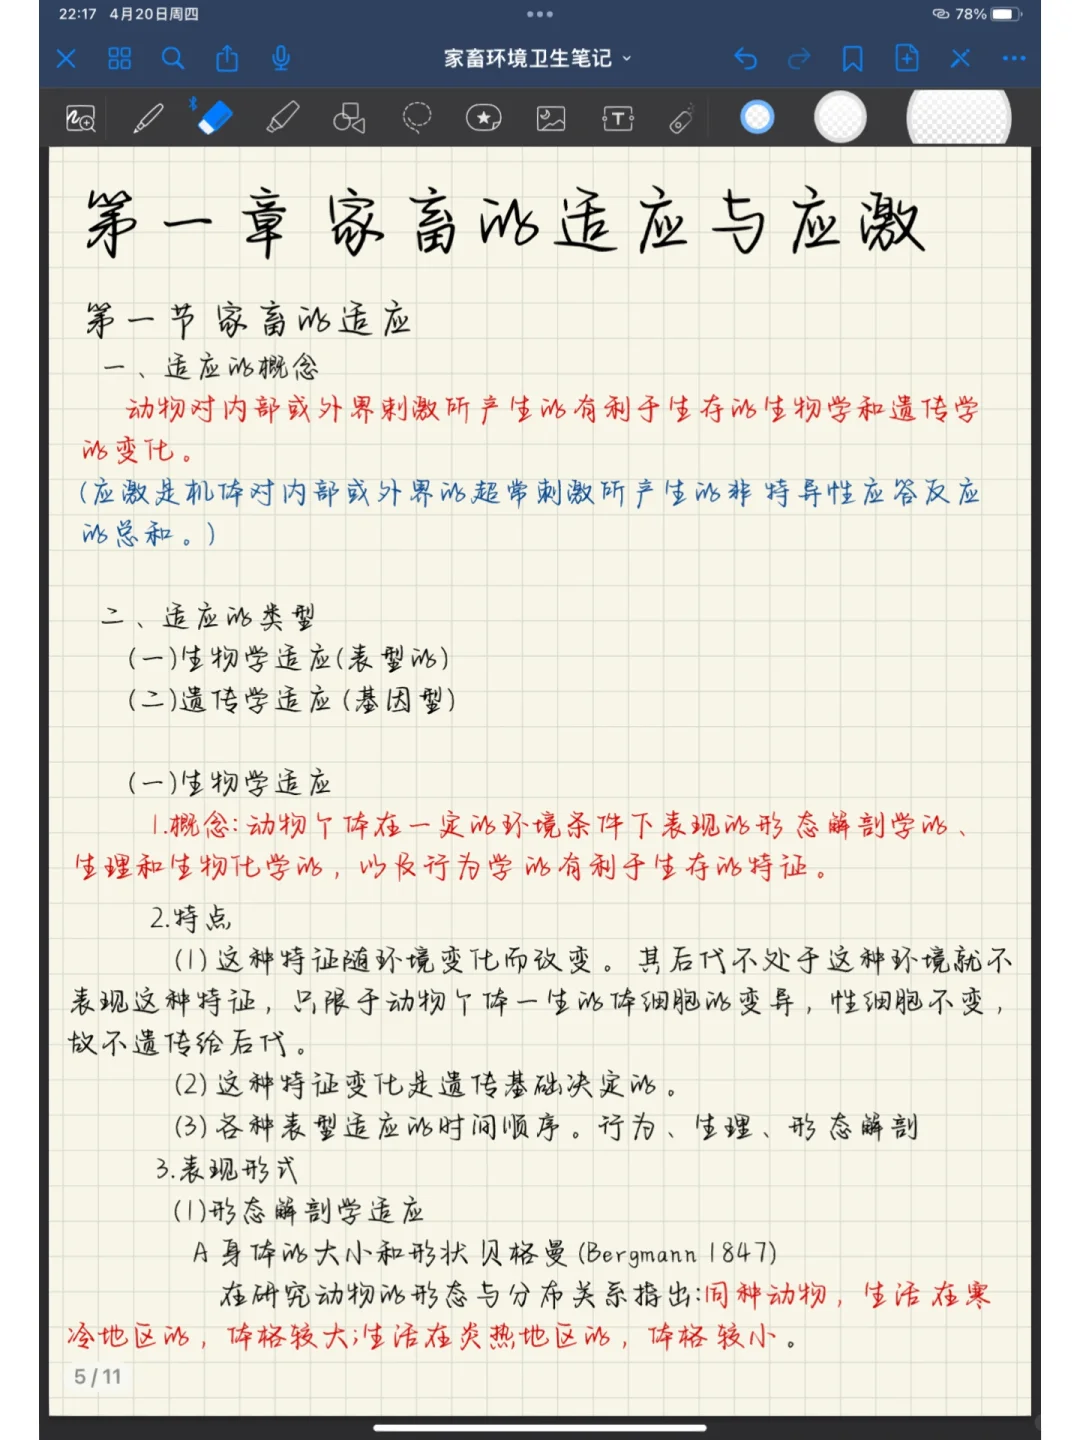 22:17 4月20日周四
78%
家畜环境卫生笔记
T
第一章 家畜的适应与应激
第一节 家畜的适应
一、适应的概念
动物对内部或外界刺激所产生的有利于生存的生物学和遗传学
的变化。
(应激是机体对内部或外界的超常刺激所产生的非特异性应答反应
的总和。)
二、适应的类型
(一)生物学适应(表型的)
(二)遗传学适应(基因型)
(一)生物学适应
1.概念:动物个体在一定的环境条件下表现的形态解剖学的、
生理和生物化学的,以及行为学的有利于生存的特征。
2.特点
(1)这种特征随环境变化而改变。其后代不处于这种环境就不
表现这种特征,只限于动物个体一生的体细胞的变异,性细胞不变,
故不遗传给后代。
(2)这种特征变化是遗传基础决定的。
(3)各种表型适应的时间顺序。行为、生理、形态解剖
3.表现形式
(1)形态解剖学适应
A 身体的大小和形状 贝格曼(Bergmann 1847)
在研究动物的形态与分布关系指出:同种动物,生活在寒
冷地区的,体格较大;生活在炎热地区的,体格较小。
5/11